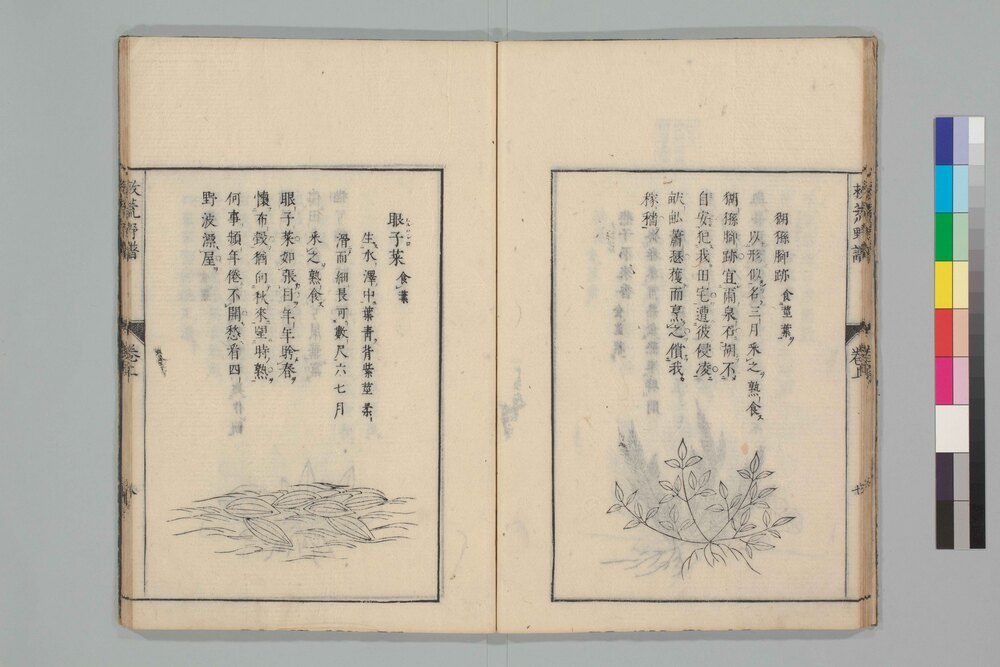 救荒野譜
猢猻腳跡 食莖葉
以形似名三月采之熟食
猢猻腳跡宜爾泉石胡不
自安犯我田宅遭彼侵凌
蕭瑟獲而烹之償我
稼穡
眼子菜 食葉
生水澤中葉青背紫莖柔
滑而細長可數尺六七月
采之熟食
眼子菜如張目年年盼春
懷布穀猶向秋來望時熟
何事頻年倦不開愁看四
野波漂屋
救荒野譜